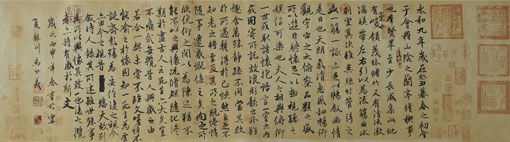 永和九年歲在癸丑暮春之初會
于會稽山陰之蘭亭脩禊事
也群賢畢至少長咸集此地
有峻領茂林脩竹又有清流激
湍暎帶左右引以為流觴曲水
列坐其次雖無絲竹管弦之
盛一觴一詠亦足以暢敘幽情
是日也天朗氣清惠風和暢仰
觀宇宙之大俯察品類之盛
所以遊目騁懷足以極視聽之
娛信可樂也夫人之相與俯仰
一世或取諸懷抱悟言一室之內
或因寄所託放浪形骸之外雖
趣舍萬殊靜躁不同當其欣
於所遇蹔得於己怏然自足不
知老之將至及其所之既惓情
隨事遷感慨係之矣向之所
欣俛仰之間以為陳迹猶不
能不以之興懷況脩短隨化終
期於盡古人云死生亦大矣豈
不痛哉每攬昔人興感之由
若合一契未嘗不臨文嗟悼不
能喻之於懷固知一死生為虛
誕齊彭殤為妄作後之視今
亦由今之視昔悲夫故列
敘時人錄其所述雖世殊事
異所以興懷其致一也後之攬
者亦將有感於斯文